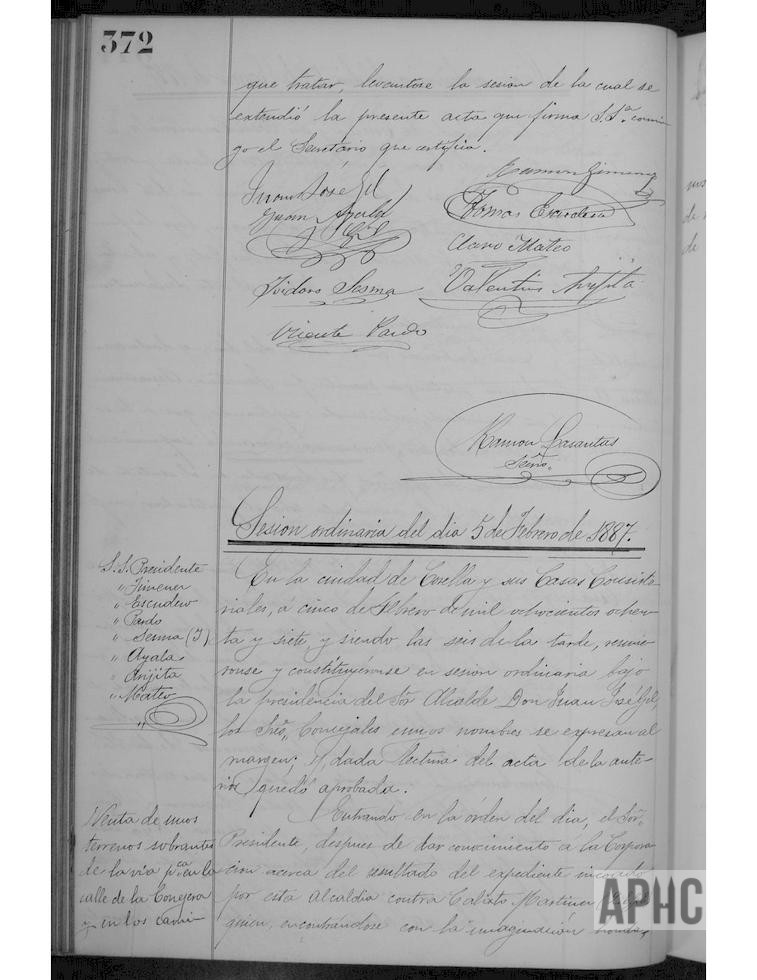 372
que tratar, levantose la sesion de la cual se
extendió la presente acta que firma S.S.ª conmi
go el Secretario que certifica.
Ramon Gimenez
Juan José Gil
Juan Ayala
Tomas Escudero
Claro Mateo
Isidoro Sesma
Valentin Arjita
Vicente Pardo
Ramon Lasantas
Srio.
Sesion ordinaria del dia 5 de Febrero de 1887.
S.S. Presidente
" Jimenez
" Escudero
" Pardo
" Sesma (I)
" Ayala
" Arjita
" Mateo
"
En la ciudad de Corella y sus Casas Consisto
riales, a cinco de Febrero de mil ochocientos ochen
ta y siete y siendo las seis de la tarde, reunie
ronse y constituyéronse en sesion ordinaria bajo
la presidencia del Sor. Alcalde Don Juan José Gil,
los Sres. Concejales cuyos nombres se expresan al
margen; y dada lectura del acta de la ante-
rior quedó aprobada.
Venta de unos
terrenos sobrantes
de la via pca. en la
calle de la Conejera
y en los cami-
Entrando en la órden del dia, el Sor.
Presidente, despues de dar conocimiento a la Corpora
cion acerca del resultado del expediente incoado
por esta Alcaldia contra Calisto Martinez
quien, encontrandose con la imaginacion
APHC